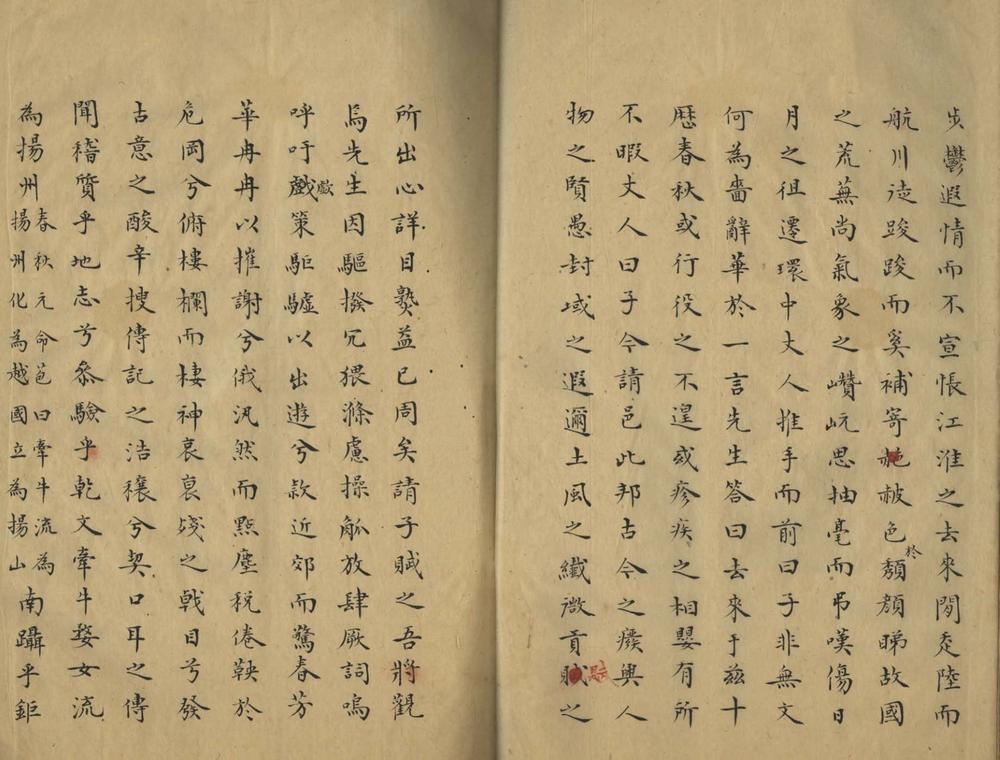 步鬱遐情而不宣悵江淮之去來閒陸而
航川徒踆踆而奚補寄赩赧色於頽顏睇故國
之荒蕪尚氣象之巑岏思抽毫而弔嘆傷日
月之徂遷環中丈人推手而前曰子非無文
何為嗇辭華於一言先生答曰去來于兹十
歷春秋或行役之不遑或疹疾之相嬰有所
不暇丈人曰子今請邑此邦古今之癈興人
物之賢愚封域之遐邇土風之纖微貢賦之
所出心詳目熟益已周矣請子賦之吾將觀
焉先生因驅撥冗猥滌慮操觚放肆厥詞嗚
呼吁戲歔策駏驉以出遊兮款近郊而驚春芳
華冉冉以摧謝兮俄汎然而點塵稅倦鞅於
危岡兮俯樓欄而棲神哀哀殘之戟目兮發
古意之酸辛搜傳記之浩穰兮契口耳之傳
聞稽質乎地志兮叅驗乎乾文牽牛婺女流
為揚州春秋元命苞曰牽牛流為揚州化為越國立為揚山南躡乎鉅